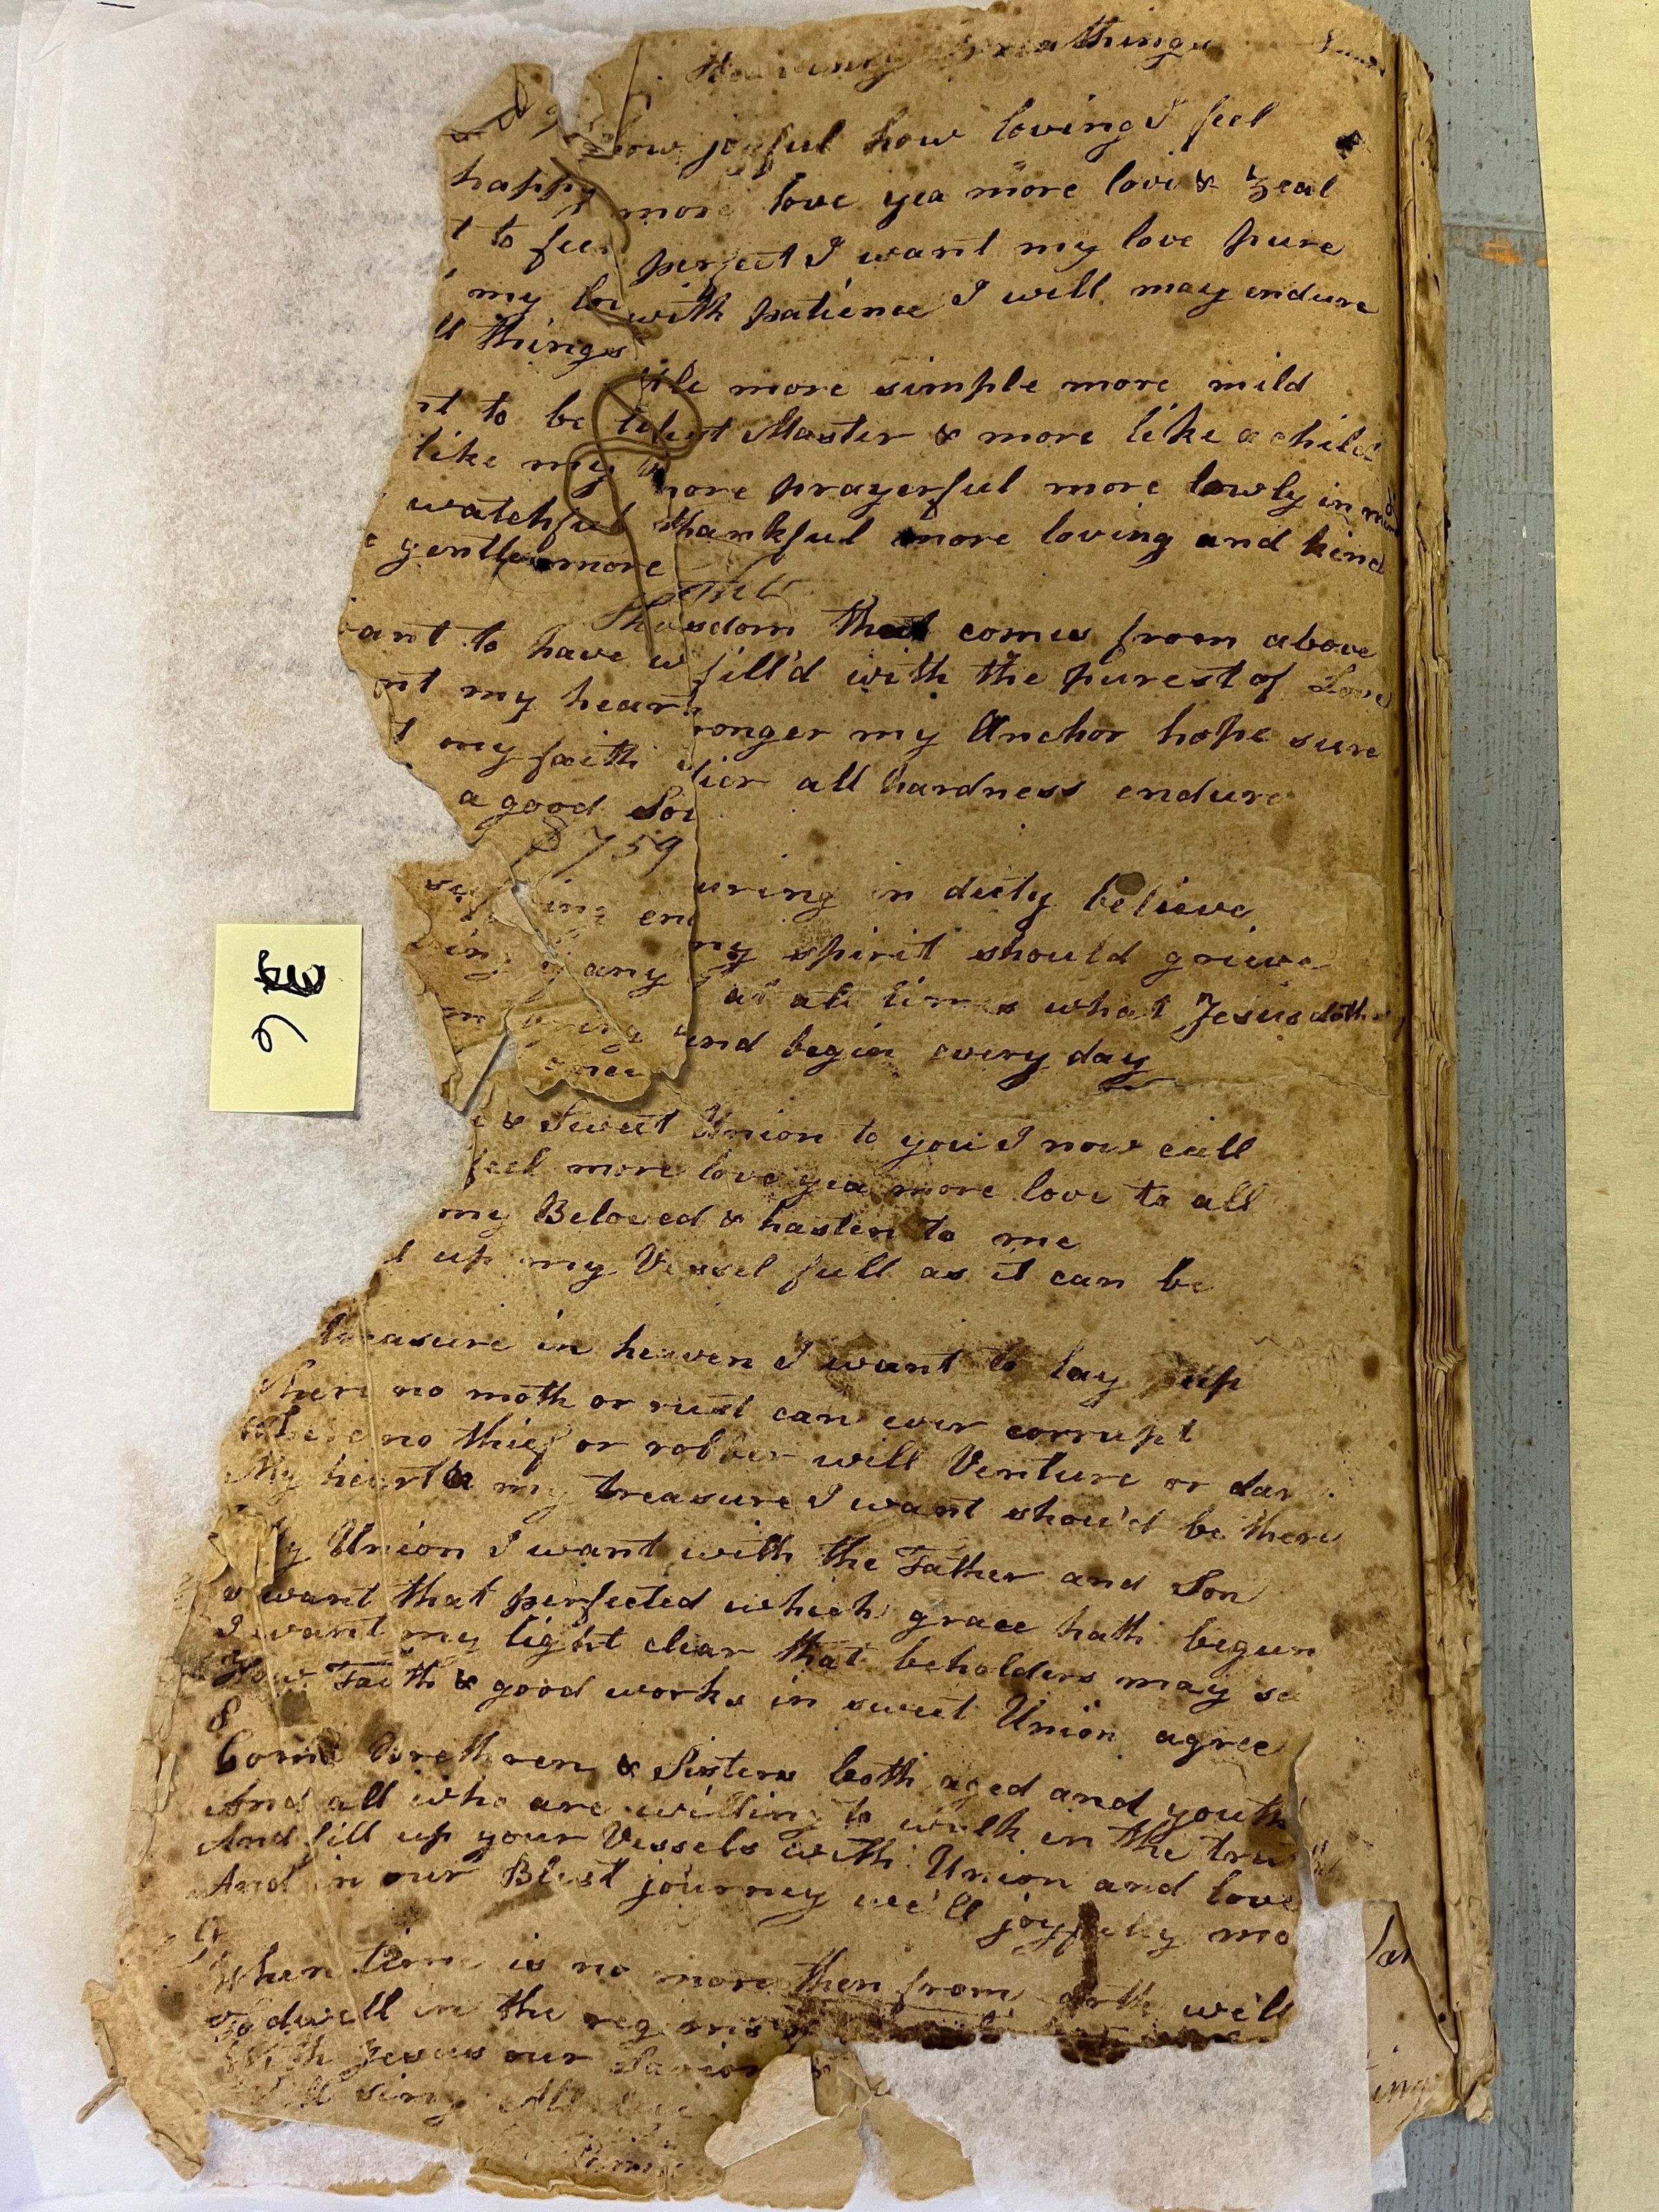 Heavenly Breathings
how joyful how loving I feel
happy more love yea more love & Zeal
t to feel perfect I want my love pure
my lo with patience I will may endure
ll things
tle more simple more mild
nt to be blest Master & more like a child
like my more prayerful more lowly in mind
watchful thankful more loving and kind
e gentle more
ant to have wisdom that comes from above
nt my heart fill'd with the purest of Love
t my faith stronger my Anchor hope sure
a good Soldier all hardness endure
1759
suffering enduring in duty believe
ing if any my spirit should grieve
at all times what Jesus doth
once and begin every day
e & Sweet Union to you I now call
feel more love yea more love to all
my Beloved & hasten to me
l up my Vessel full as it can be
treasure in heaven I want to lay up
Where no moth or rust can ever corrupt
Where no thief or robber will Venture or dar
My heart & my treasure I want shou'd be there
y Union I want with the Father and Son
I want that perfected which grace hath begun
I want my light clear that beholders may se
How Faith & good works in sweet Union agree
8
Come Brethren & Sisters both aged and youth
And all who are willing to walk in the tru
And fill up your Vessels with Union and love
And in our Blest journey we'll joyfully mo
9
When time is no more then from earth we'll
To dwell in the regions
With Jesus our Savior
sing
36